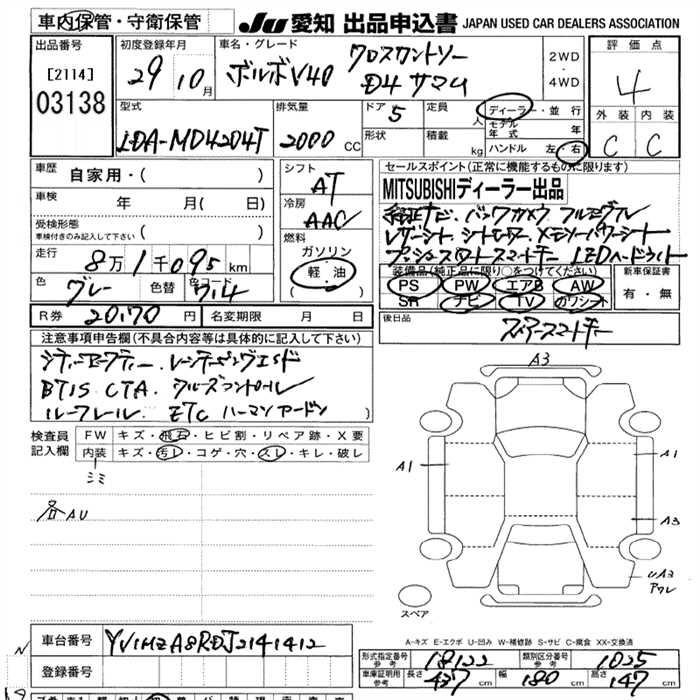 車内保管・守衛保管
JU 愛知 出品申込書 JAPAN USED CAR DEALERS ASSOCIATION
出品番号
[2114]
03138
初度登録年月
29 10月
車名・グレード
ボルボV40 クロスカントリー
D4 サマム
2WD
・
4WD
評価点
4
外装 内装
C C
型式
LDA-MD4204T
排気量
2000 CC
ドア 5
形状
定員 人
積載 kg
ディーラー・並行
モデル年式 年
ハンドル 左・右
車歴 自家用・( )
車検 年 月( 日)
受検形態
車検付きのみ記入して下さい ( )
走行 8万1千095km
色 グレー 色替 カラーコード 714
シフト
AT
冷房
AAC
燃料
ガソリン
軽・油
( )
セールスポイント(正常に機能するものに限ります)
MITSUBISHIディーラー出品
純正ナビ. バックカメラ フルセグTV
レザーシート シートヒーター メモリーパワーシート
プッシュスタート スマートキー LEDヘッドライト
装備品(純正品に限り○をつけてください)
PS PW エアB AW
SR ナビ TV カワシート
新車保証書
有・無
R券 20170 円 名変期限 月 日
後日品
スペアースマートキー
注意事項申告欄(不具合内容等は具体的に記入して下さい)
シティーセーフティー. レーンキーピングエイド
BTIS CTA. クルーズコントロール
ルーフレール. ETC ハーマンカードン )
検査員
記入欄
FW キズ・飛石・ヒビ割・リペア跡・X要
内装 キズ・汚レ・コゲ・穴・スレ・キレ・破レ
シミ
各AU
A3
A1
A1
A3
UA3
アワレ
スペア
A-キズ E-エクボ U-凹み W-補修跡 S-サビ C-腐食 XX-交換済
車台番号 YV1MZA8RDJ2141412
登録番号
形式指定番号
参考 18122
類別区分番号
参考 1025
車庫証明用
参考
長さ 437 cm 幅 180 cm 高さ 147 cm